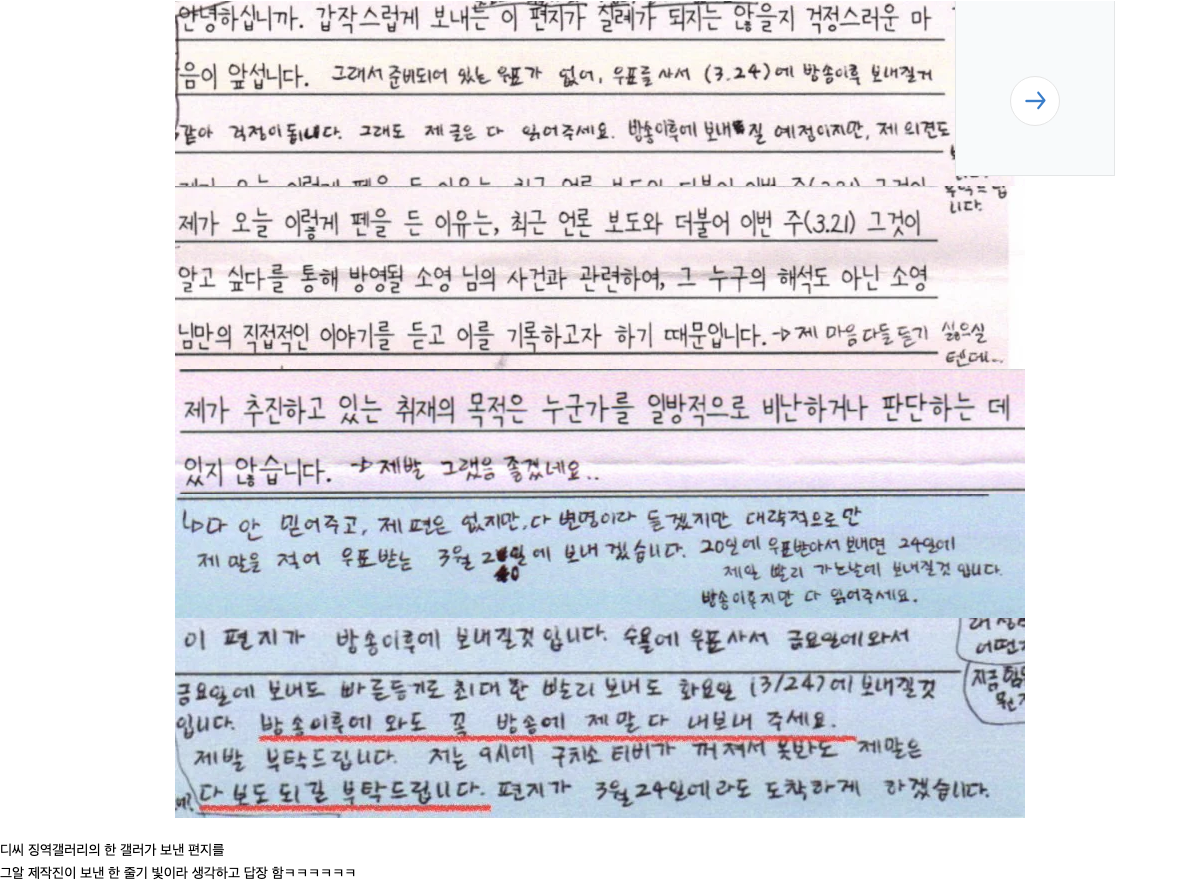 안녕하십니까. 갑작스럽게 보내는 이 편지가 실례가 되지는 않을지 걱정스러운 마
음이 앞섭니다. 그래서 준비되어 있는 우표가 없어, 우표를 사서 (3.24)에 방송이후 보내질거
같아 걱정이됩니다. 그래도 제 글은 다 읽어주세요. 방송이후에 보내질 예정이지만, 제 의견도
부탁드립
니다.
제가 오늘 이렇게 펜을 든 이유는, 최근 언론 보도와 더불어 이번 주(3.21) 그것이
알고 싶다를 통해 방영될 소영 님의 사건과 관련하여, 그 누구의 해석도 아닌 소영
님만의 직접적인 이야기를 듣고 이를 기록하고자 하기 때문입니다. → 제 마음다들듣기 싫으실
텐데...
제가 추진하고 있는 취재의 목적은 누군가를 일방적으로 비난하거나 판단하는 데
있지 않습니다. → 제발 그랬음 좋겠네요..
↳다 안 믿어주고, 제 편은 없지만, 다 변명이라 듣겠지만 대략적으로만
제 말을 적어 우표받는 3월 20일에 보내겠습니다. 20일에 우표받아서 보내면 24일에
제일 빨리 가는날에 보내질것 입니다.
방송이후지만 다 읽어주세요.
이 편지가 방송이후에 보내질것 입니다. 수욜에 우표사서 금요일에와서
금요일에 보내도 빠른등기로 최대한 빨리 보내도 화요일 (3/24)에 보내질것
입니다. 방송이후에 와도 꼭 방송에 제말 다 내보내 주세요.
제발 부탁드립니다. 저는 9시에 구치소 티비가 꺼져서 못봐도 제말은
다 보도 되길 부탁드립니다. 편지가 3월 24일에라도 도착하게 하겠습니다.
디씨 징역갤러리의 한 갤러가 보낸 편지를
그알 제작진이 보낸 한 줄기 빛이라 생각하고 답장 함ㅋㅋㅋㅋㅋㅋ